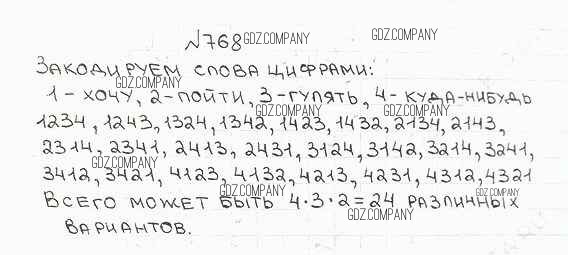 №768
Закодируем слова цифрами:
1 - хочу, 2 - пойти, 3 - гулять, 4 - куда-нибудь
1234, 1243, 1324, 1342, 1423, 1432, 2134, 2143,
2314, 2341, 2413, 2431, 3124, 3142, 3214, 3241,
3412, 3421, 4123, 4132, 4213, 4231, 4312, 4321
Всего может быть 4·3·2=24 различных
вариантов.
GDZ.COMPANY
GDZ.COMPANY
GDZ.COMPANY
GDZ.COMPANY
GDZ.COMPANY
GDZ.COMPANY
GDZ.COMPANY
GDZ.COMPANY
GDZ.COMPANY
GDZ.COMPANY